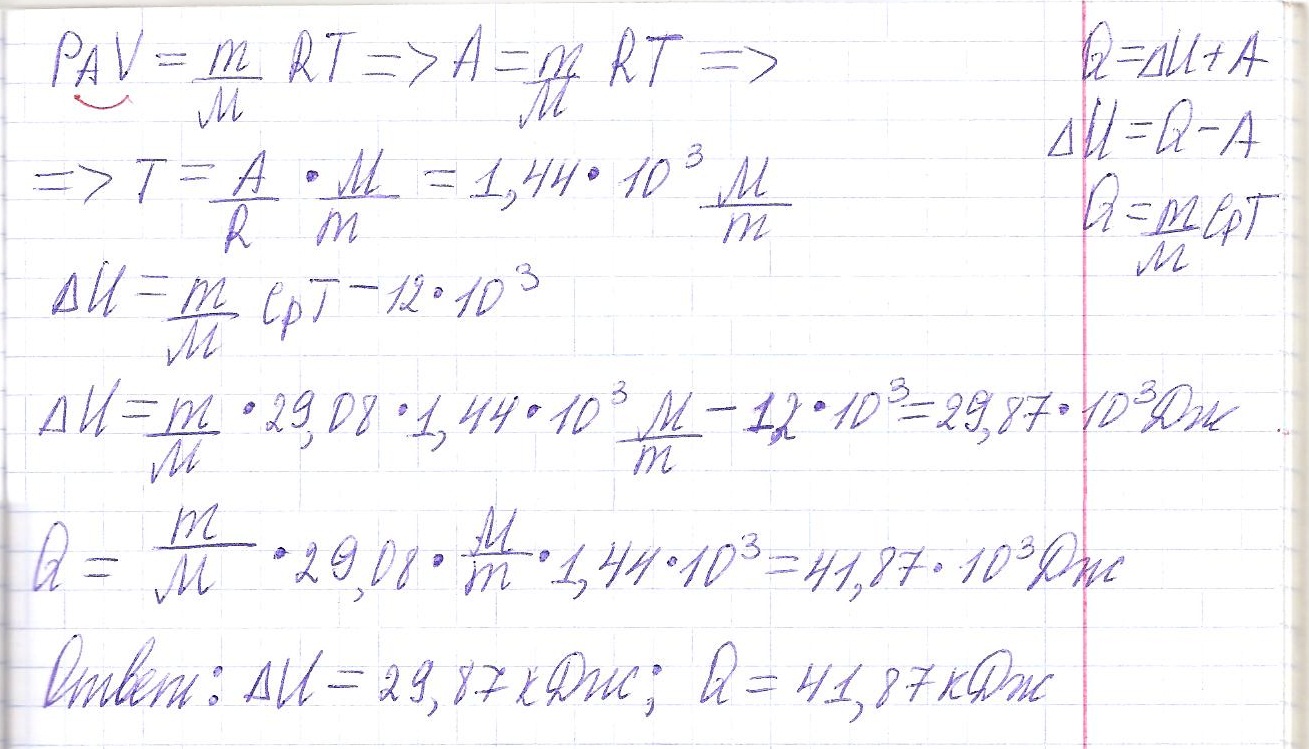 PΔV = m/M RT => A = m/M RT =>
=> T = A/R · M/m = 1,44 · 10³ M/m
ΔU = m/M CpT - 12 · 10³
ΔU = m/M · 29,08 · 1,44 · 10³ M/m - 12 · 10³ = 29,87 · 10³ Дж
Q = m/M · 29,08 · M/m · 1,44 · 10³ = 41,87 · 10³ Дж
Ответ: ΔU = 29,87 кДж; Q = 41,87 кДж
Q = ΔU + A
ΔU = Q - A
Q = m/M CpT